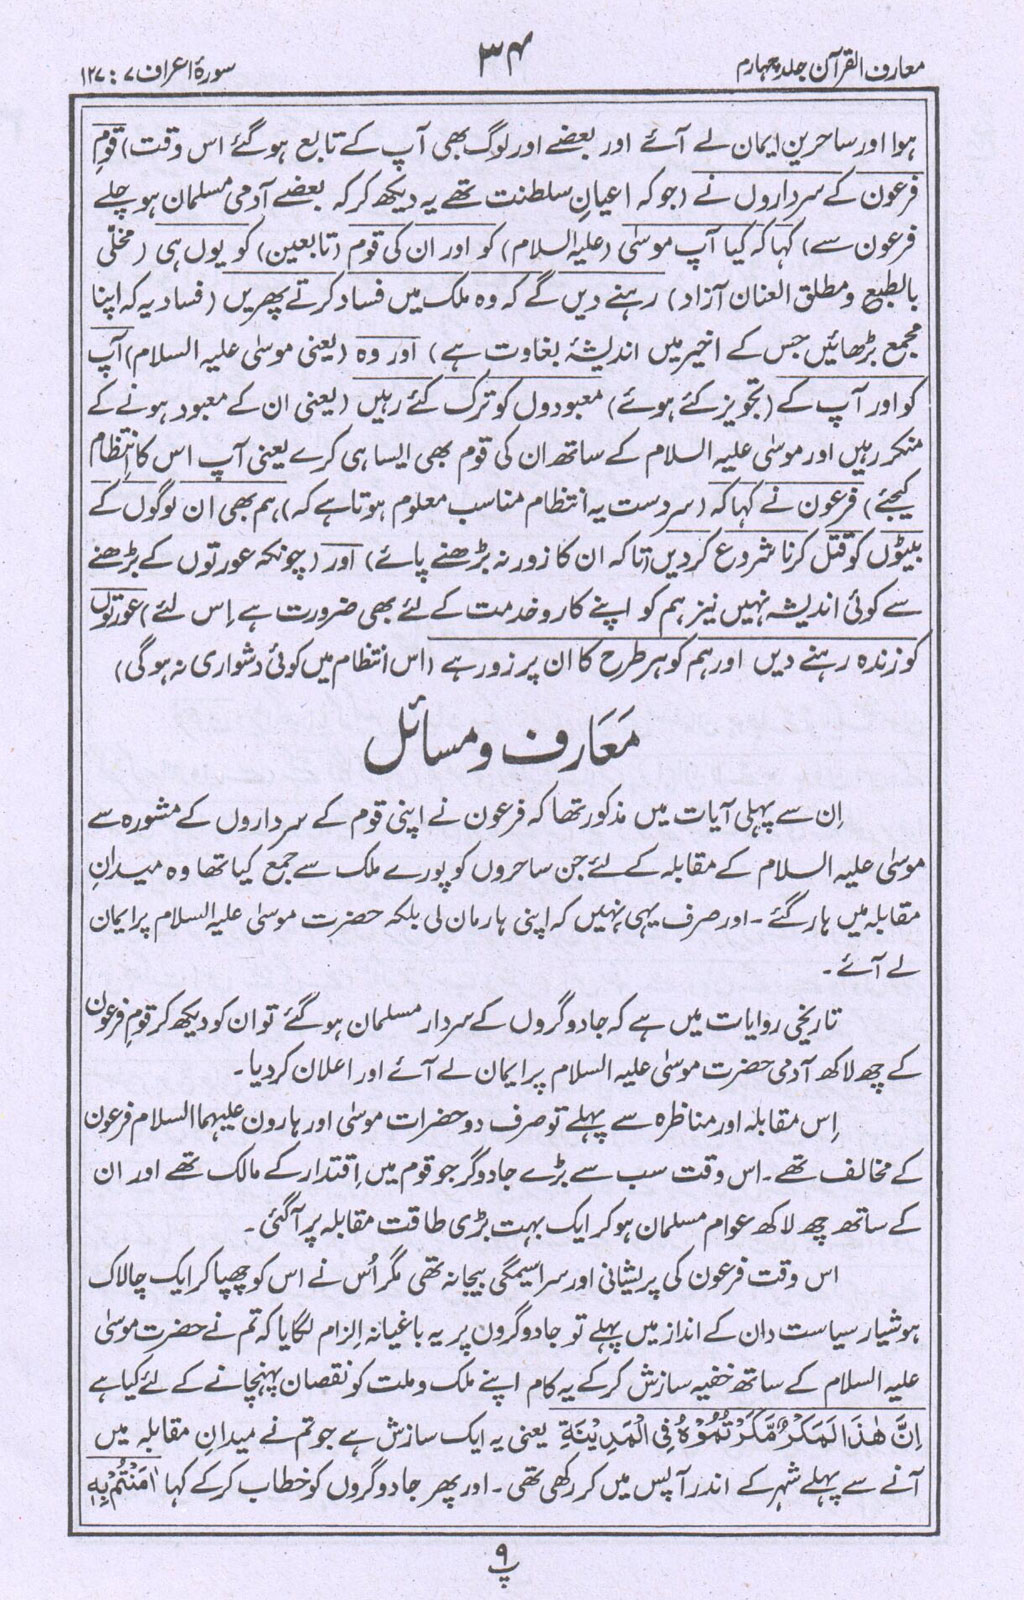 معارف القرآن جلد چہارم
۳۴
سورۂ اعراف ۷ : ۱۲۷
ہوا اور ساحرین ایمان لے آئے اور بعضے اور لوگ بھی آپ کے تابع ہو گئے اس وقت) قوم
فرعون کے سرداروں نے (جو کہ اعیانِ سلطنت تھے یہ دیکھ کر کہ بعضے آدمی مسلمان ہو چلے
فرعون سے) کہا کہ کیا آپ موسٰی (علیہ السلام) کو اور ان کی قوم (تابعین) کو یوں ہی (مخلّٰی
بالطبع و مطلق العنان آزاد) رہنے دیں گے کہ وہ ملک میں فساد کرتے پھریں (فساد یہ کہ اپنا
مجمع بڑھائیں جس کے اخیر میں اندیشۂ بغاوت ہے) اور وہ (یعنی موسٰی علیہ السلام) آپ
کو اور آپ کے (تجویز کئے ہوئے) معبودوں کو ترک کئے رہیں (یعنی ان کے معبود ہونے کے
منکر رہیں اور موسٰی علیہ السلام کے ساتھ ان کی قوم بھی ایسا ہی کرے یعنی آپ اس کا انتظام
کیجئے) فرعون نے کہا کہ (سردست یہ انتظام مناسب معلوم ہوتا ہے کہ) ہم بھی ان لوگوں کے
بیٹوں کو قتل کرنا شروع کر دیں (تا کہ ان کا زور نہ بڑھنے پائے) اور (چونکہ عورتوں کے بڑھنے
سے کوئی اندیشہ نہیں نیز ہم کو اپنے کار و خدمت کے لئے بھی ضرورت ہے اِس لئے) عورتوں
کو زندہ رہنے دیں اور ہم کو ہر طرح کا ان پر زور ہے (اس انتظام میں کوئی دشواری نہ ہوگی)
مَعَارف و مسائل
اِن سے پہلی آیات میں مذکور تھا کہ فرعون نے اپنی قوم کے سرداروں کے مشورہ سے
موسٰی علیہ السلام کے مقابلہ کے لئے جن ساحروں کو پورے ملک سے جمع کیا تھا وہ میدانِ
مقابلہ میں ہار گئے ۔ اور صرف یہی نہیں کہ اپنی ہار مان لی بلکہ حضرت موسٰی علیہ السلام پر ایمان
لے آئے ۔
تاریخی روایات میں ہے کہ جادوگروں کے سردار مسلمان ہو گئے تو ان کو دیکھ کر قومِ فرعون
کے چھ لاکھ آدمی حضرت موسٰی علیہ السلام پر ایمان لے آئے اور اعلان کر دیا ۔
اِس مقابلہ اور مناظرہ سے پہلے تو صرف دو حضرات موسٰی اور ہارون علیہما السلام فرعون
کے مخالف تھے ۔ اس وقت سب سے بڑے جادوگر جو قوم میں اِقتدار کے مالک تھے اور ان
کے ساتھ چھ لاکھ عوام مسلمان ہو کر ایک بہت بڑی طاقت مقابلہ پر آ گئی ۔
اس وقت فرعون کی پریشانی اور سراسیمگی بیجا نہ تھی مگر اُس نے اس کو چھپا کر ایک چالاک
ہوشیار سیاست دان کے انداز میں پہلے تو جادوگروں پر یہ باغیانہ اِلزام لگایا کہ تم نے حضرت موسٰی
علیہ السلام کے ساتھ خفیہ سازش کر کے یہ کام اپنے ملک و ملت کو نقصان پہنچانے کے لئے کیا ہے
اِنَّ ھٰذَا لَمَکْرٌ مَّکَرْتُمُوْہُ فِی الْمَدِیْنَۃِ یعنی یہ ایک سازش ہے جو تم نے میدانِ مقابلہ میں
آنے سے پہلے شہر کے اندر آپس میں کر رکھی تھی ۔ اور پھر جادوگروں کو خطاب کر کے کہا اٰمَنْتُمْ بِہٖ
۹
پ